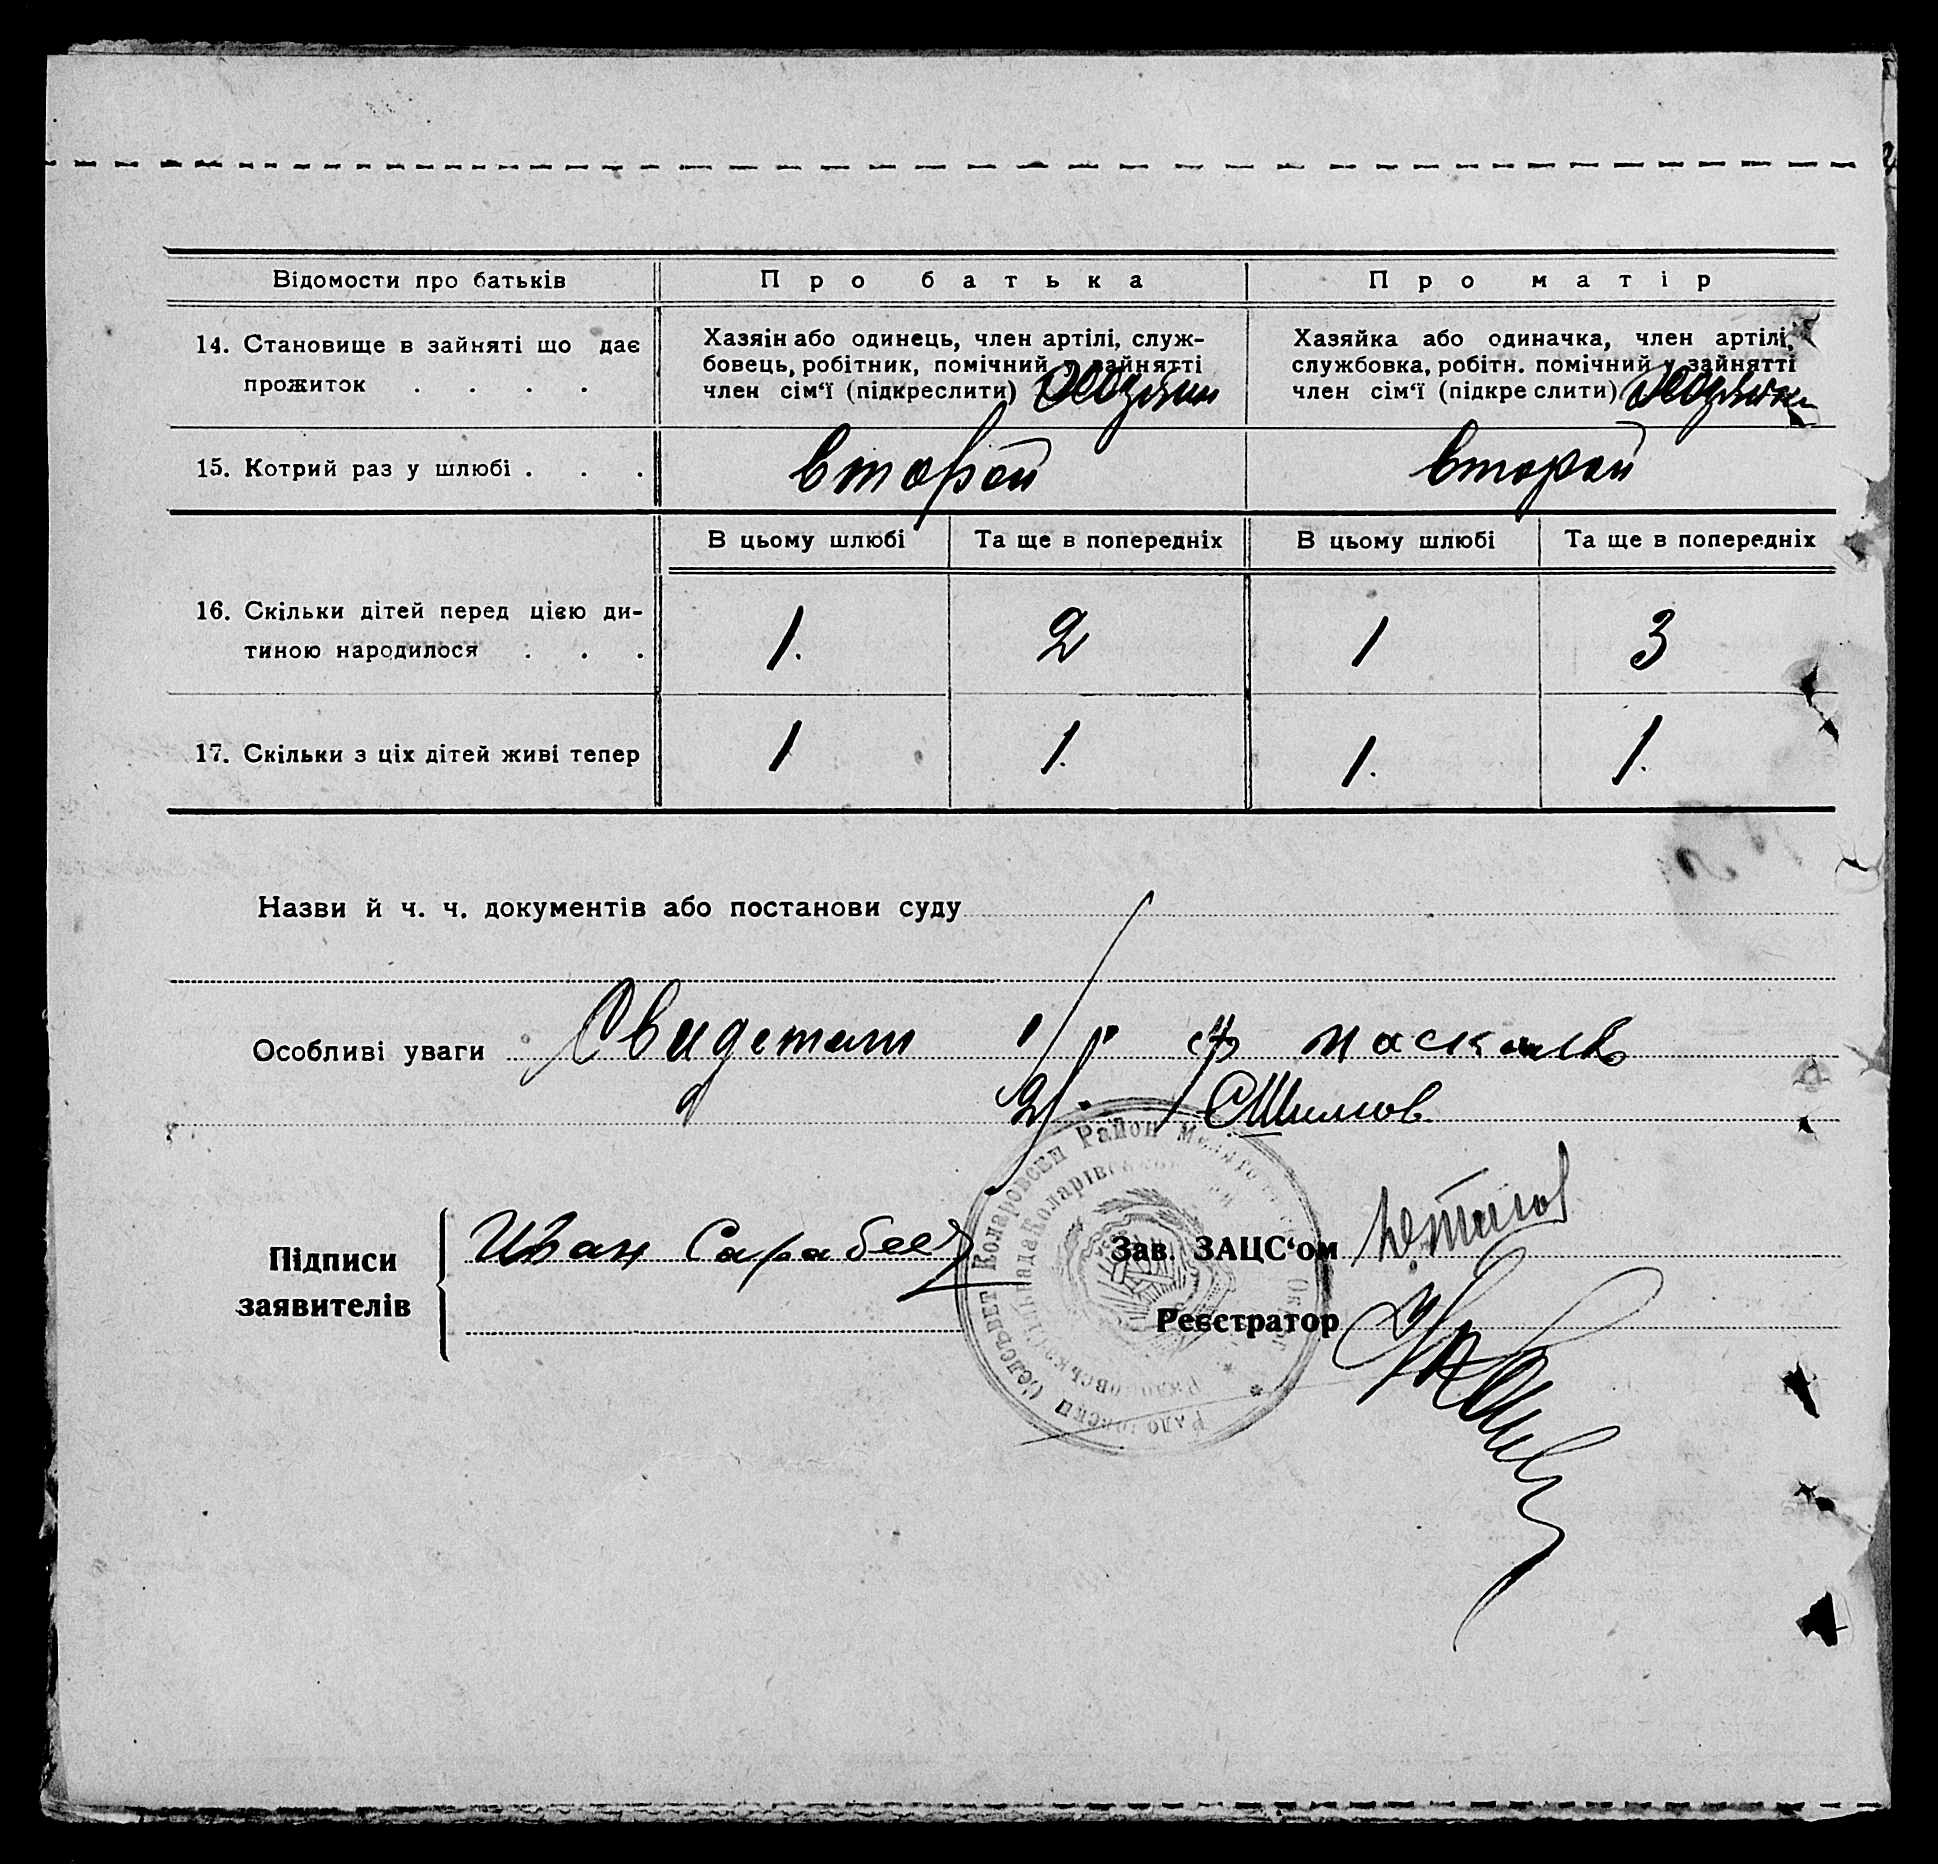 Відомости про батьків
Про батька
Про матір
14. Становище в зайняті що дає
прожиток . . . .
Хазяін або одинець, член артілі, служ-
бовець, робітник, помічний у зайнятті
член сім‘ї (підкреслити)
Хазяйка або одиначка, член артілі,
службовка, робітн. помічний у зайнятті
член сім‘ї (підкре слити)
15. Котрий раз у шлюбі . . .
второй
второй
В цьому шлюбі
Та ще в попередніх
В цьому шлюбі
Та ще в попередніх
16. Скільки дітей перед цією ди-
тиною народилося . . .
1.
2
1
3
17. Скільки з ціх дітей живі тепер
1
1.
1.
1.
Назви й ч. ч. документів або постанови суду
Особливі уваги
Свидетели 1/.
2/.
Підписи
заявителів
Иван Сарабеев
Зав. ЗАЦС‘ом
Реєстратор
Коларовски Район
Сельсьвет